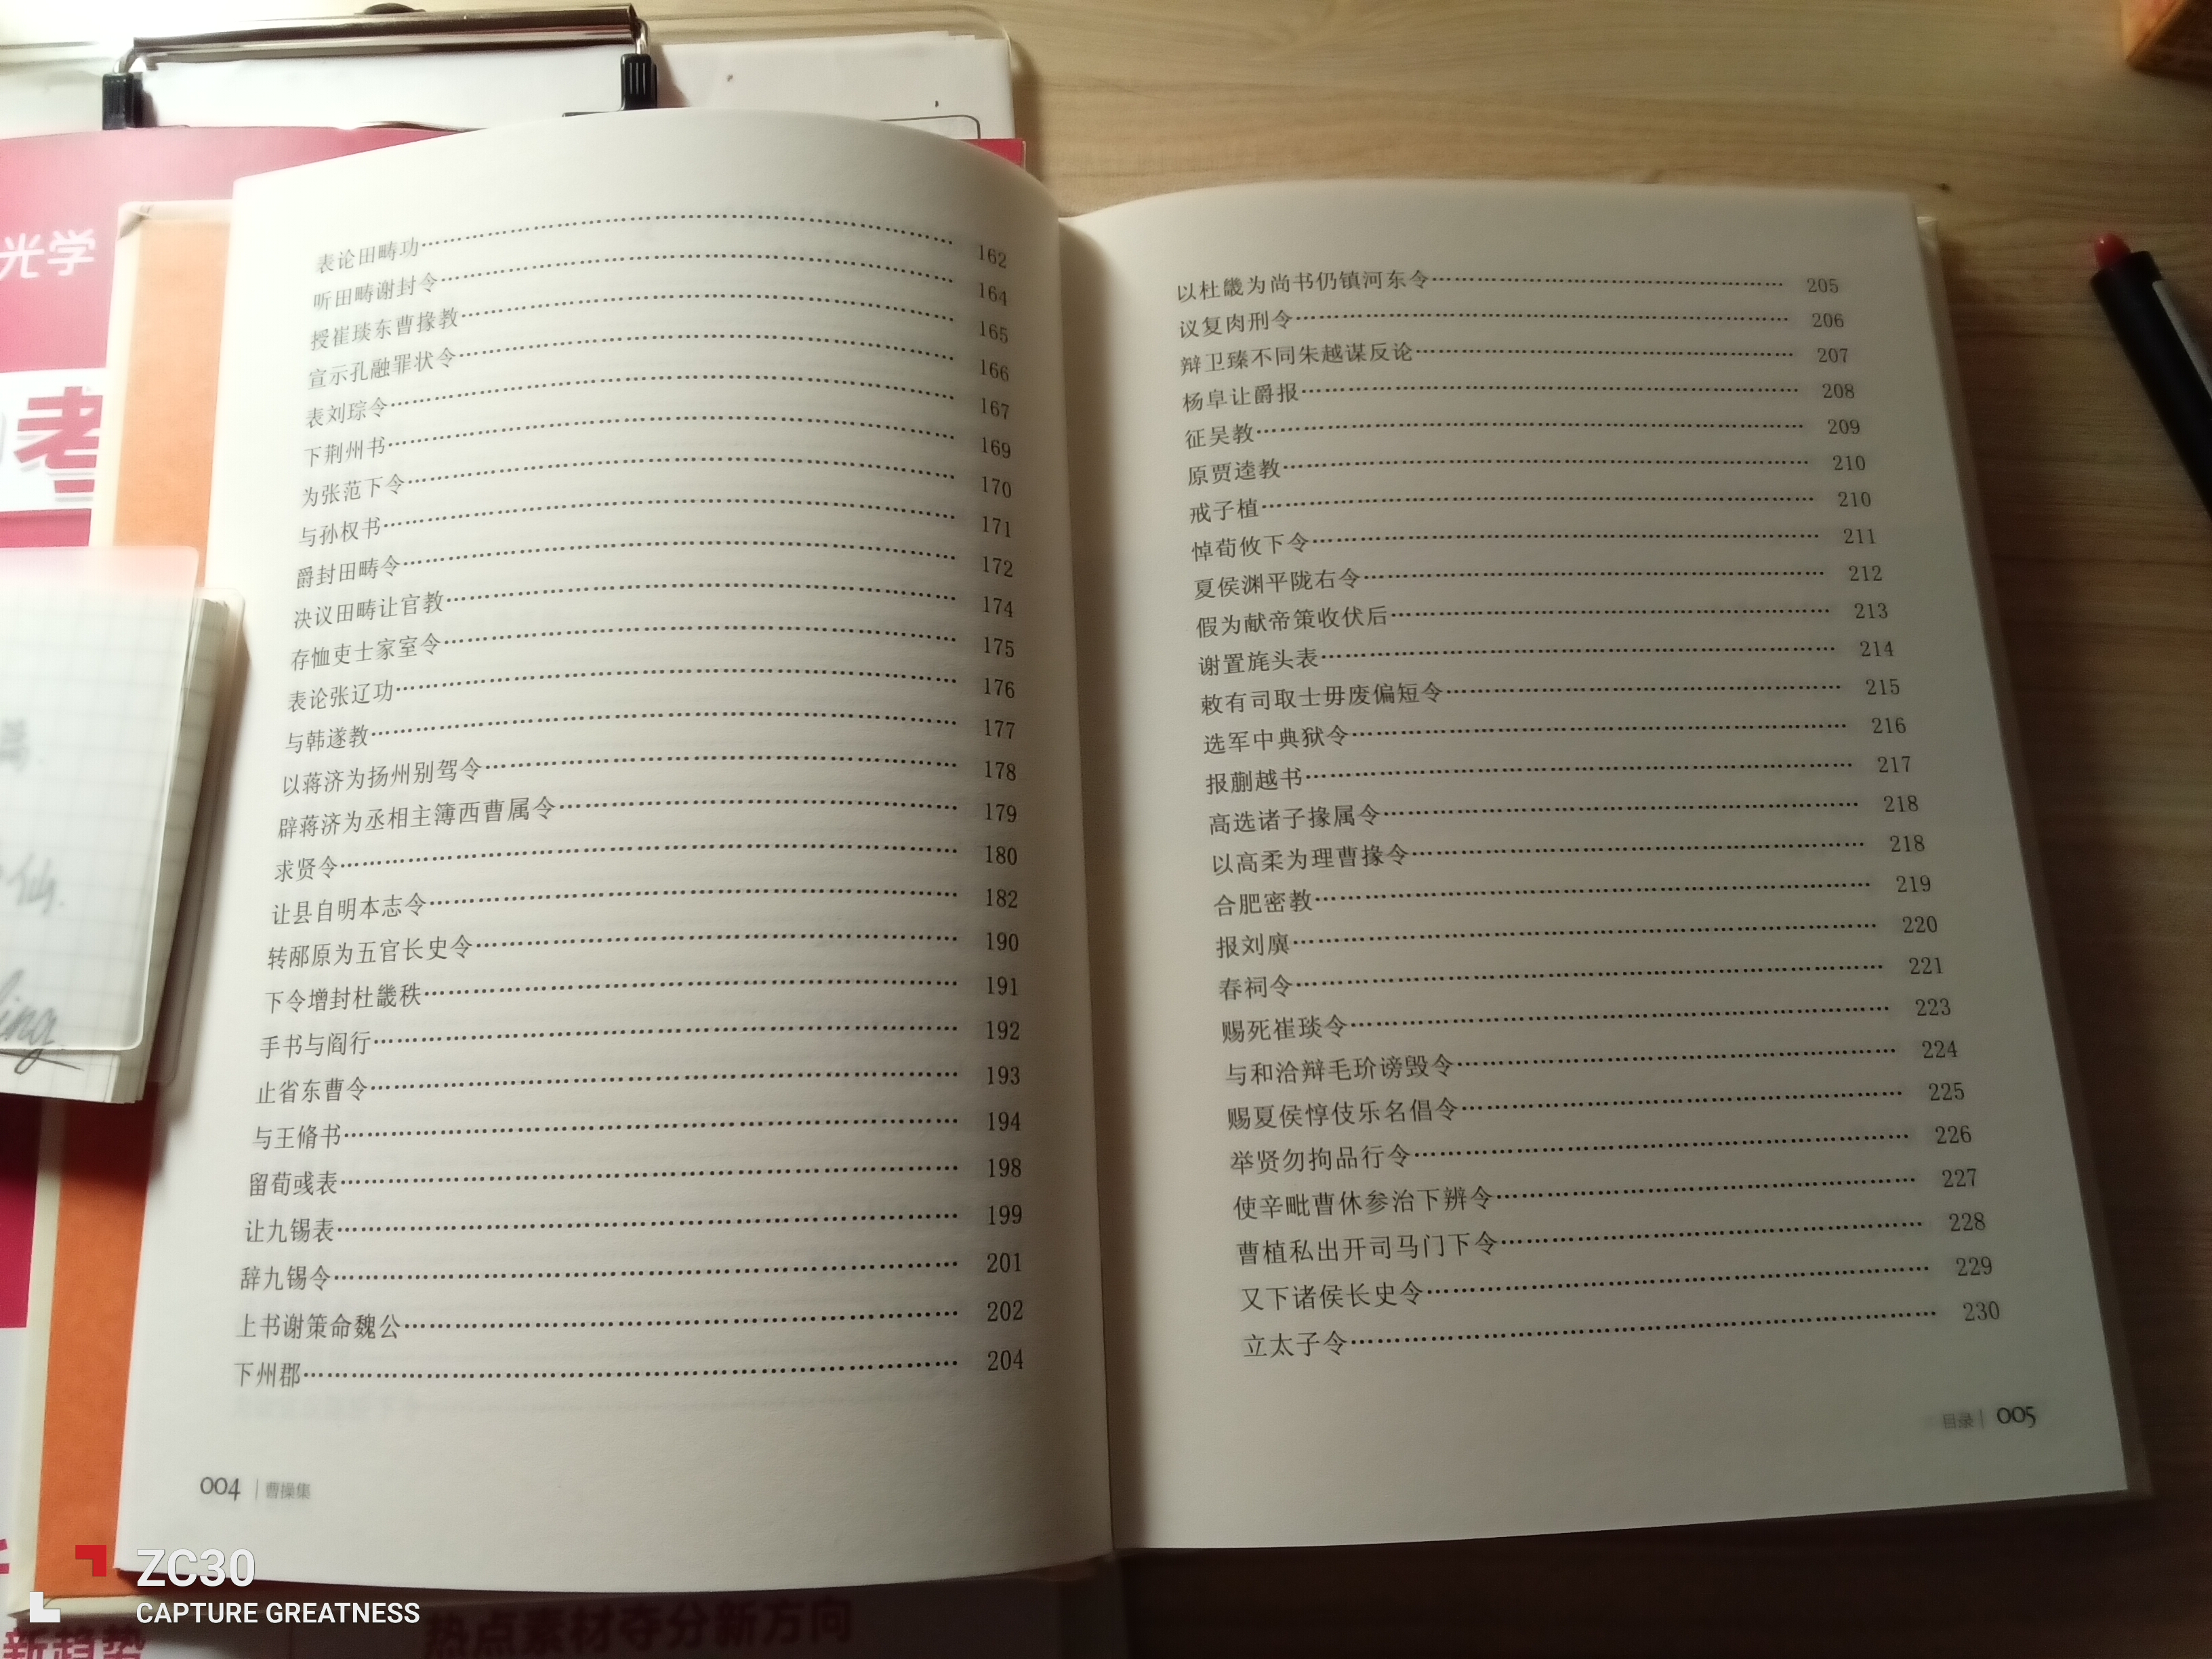 表论田畴功……162
听田畴谢封令……164
授崔琰东曹掾教……165
宣示孔融罪状令……166
表刘琮令……167
下荆州书……169
为张范下令……170
与孙权书……171
爵封田畴令……172
决议田畴让官教……174
存恤吏士家室令……175
表论张辽功……176
与韩遂教……177
以蒋济为扬州别驾令……178
辟蒋济为丞相主簿西曹属令……179
求贤令……180
让县自明本志令……182
转邴原为五官长史令……190
下令增封杜畿秩……191
手书与阎行……192
止省东曹令……193
与王脩书……194
留荀彧表……198
让九锡表……199
辞九锡令……201
上书谢策命魏公……202
下州郡……204
004 | 曹操集
以杜畿为尚书仍镇河东令……205
议复肉刑令……206
辩卫臻不同朱越谋反论……207
杨阜让爵报……208
征吴教……209
原贾逵教……210
戒子植……210
悼荀攸下令……211
夏侯渊平陇右令……212
假为献帝策收伏后……213
谢置旄头表……214
敕有司取士毋废偏短令……215
选军中典狱令……216
报蒯越书……217
高选诸子掾属令……218
以高柔为理曹掾令……218
合肥密教……219
报刘廙……220
春祠令……221
赐死崔琰令……223
与和洽辩毛玠谤毁令……224
赐夏侯惇伎乐名倡令……225
举贤勿拘品行令……226
使辛毗曹休参治下辨令……227
曹植私出开司马门下令……228
又下诸侯长史令……229
立太子令……230
目录 | 005
光学
考
仙.
ing
新趋势
热点素材夺分新方向
ZC30
CAPTURE GREATNESS